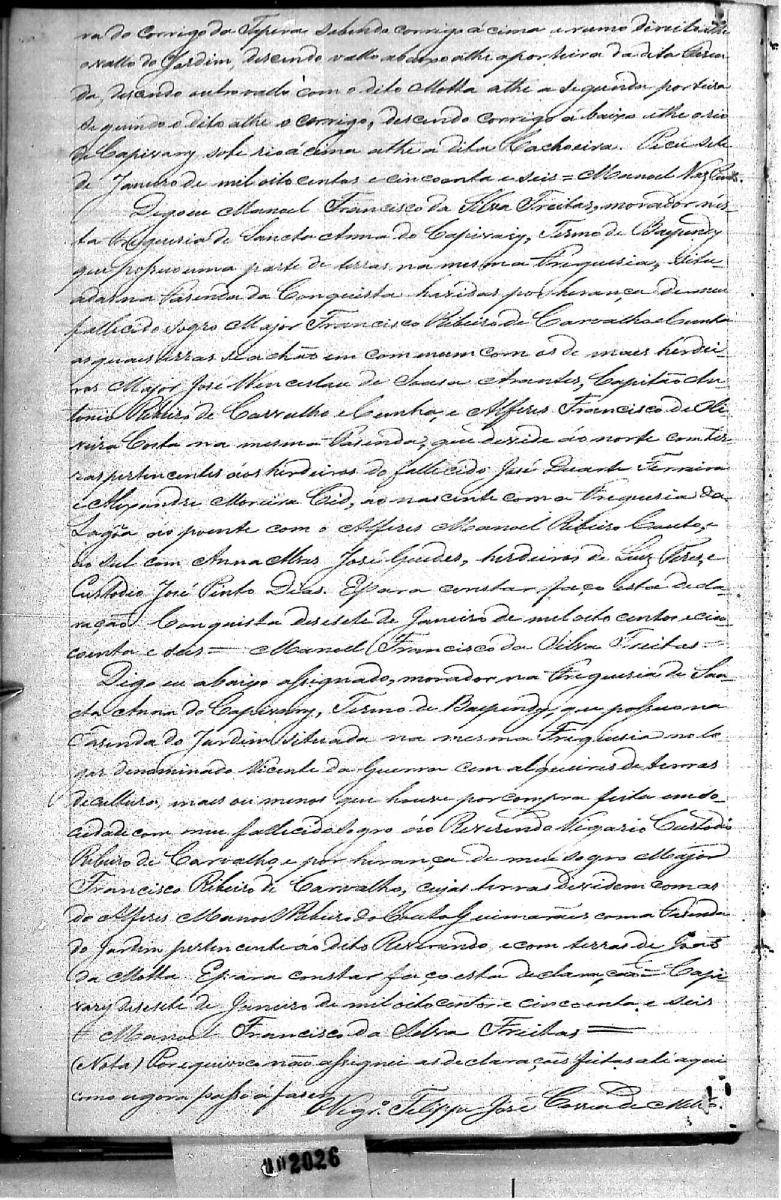 ra do corrigo da Tapera subindo corrigo á cima e rumo direito athe
o vallo do Jardim, descendo vallo abaixo athe a porteira da dita Fazen-
da, descendo outro vallo com o dito Motta athe a segunda porteira
seguindo o dito athe o corrigo, descendo corrigo á baixo athe o rio
de Capivary sobe rio á cima athe a dita Cachoeira. sete
de Janeiro de mil oito centos e cincoenta e seis = Manoel Vaz
Digo eu Manoel Francisco da Silva Freitas, morador nes-
ta Freguesia de Sancta Anna do Capivary, Termo de Baependy
que possuo uma parte de terras na mesma Freguesia, situ-
adas na Fasenda da Conquista havidas por herança de meu
fallecido sogro Major Francisco Ribeiro de Carvalho e Cunha
as quaes terras se achão em commum com os de mais herdei-
ros Major José Wenceslau de Sousa Arantes, Capitão An-
tonio Ribeiro de Carvalho e Cunha, e Alferes Francisco de Oli-
veira Costa na mesma Fasenda, que devide ao norte com ter-
ras pertencentes áos herdeiros do fallecido José Duarte Ferreira
e Alexandre Moreira Cid, ao nascente com a Freguesia da
Lagôa no poente com o Alferes Manoel Ribeiro Couto, e
ao sul com Anna José Guedes, herdeiros de Luiz Peres, e
Custodio José Pinto Dias. E para constar faço esta decla-
ração. Conquista desesete de Janeiro de mil oito centos e cin-
coenta e seis = Manoel Francisco da Silva Freitas =
Digo eu abaixo assignado, morador na Freguesia de San-
cta Anna do Capivary, Termo de Baependy, que possuo na
Fasenda do Jardim situada na mesma Freguesia no lo-
gar denominado Vicente da Guerra cem alqueires de terras
de cultura, mais ou menos que houve por compra feita em so-
ciedade com meu fallecido sogro áo Reverendo Vigario Custodio
Ribeiro de Carvalho, e por herança de meu sogro Major
Francisco Ribeiro de Carvalho, cujas terras devidem com as
do Alferes Manoel Ribeiro do Couto Guimarães, com a Fasenda
do Jardim pertencente áo dito Reverendo, e com terras de
da Motta. E para constar faço esta declaração = Capi-
vary desesete de Janeiro de mil oito centos e cincoenta e seis
= Manoel Francisco da Silva Freitas =
(Nota) Por equivoco não assignei as declarações feitas até aqui
como agora passo á fazer.
Vigr.º Felippe José Correa de Mello.
2026